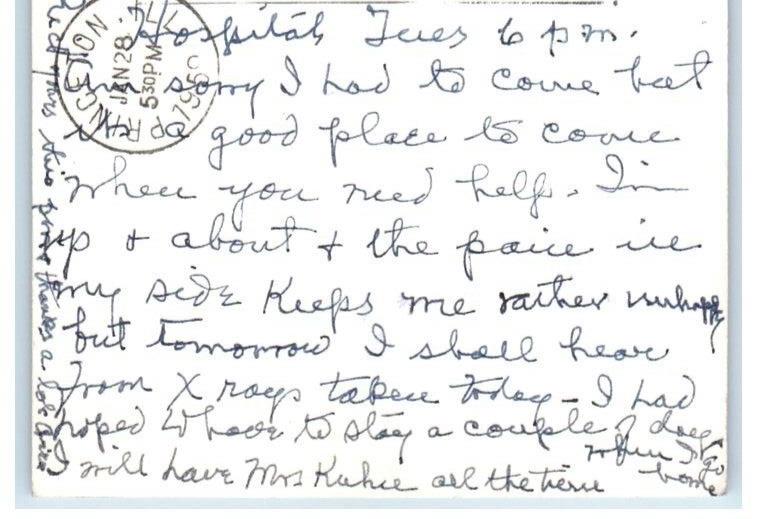 Hospital, Tues 6 p.m.
I'm sorry I had to come but
it's a good place to come
when you need help. I'm
up & about & the pain in
my side keeps me rather unhappy
but tomorrow I shall hear
from X rays taken today - I had
hoped to have to stay a couple of days
I will have Mrs Kuhie all the time
when I go
home
this
thanks a lot
JAN 28
5 30 PM
1950